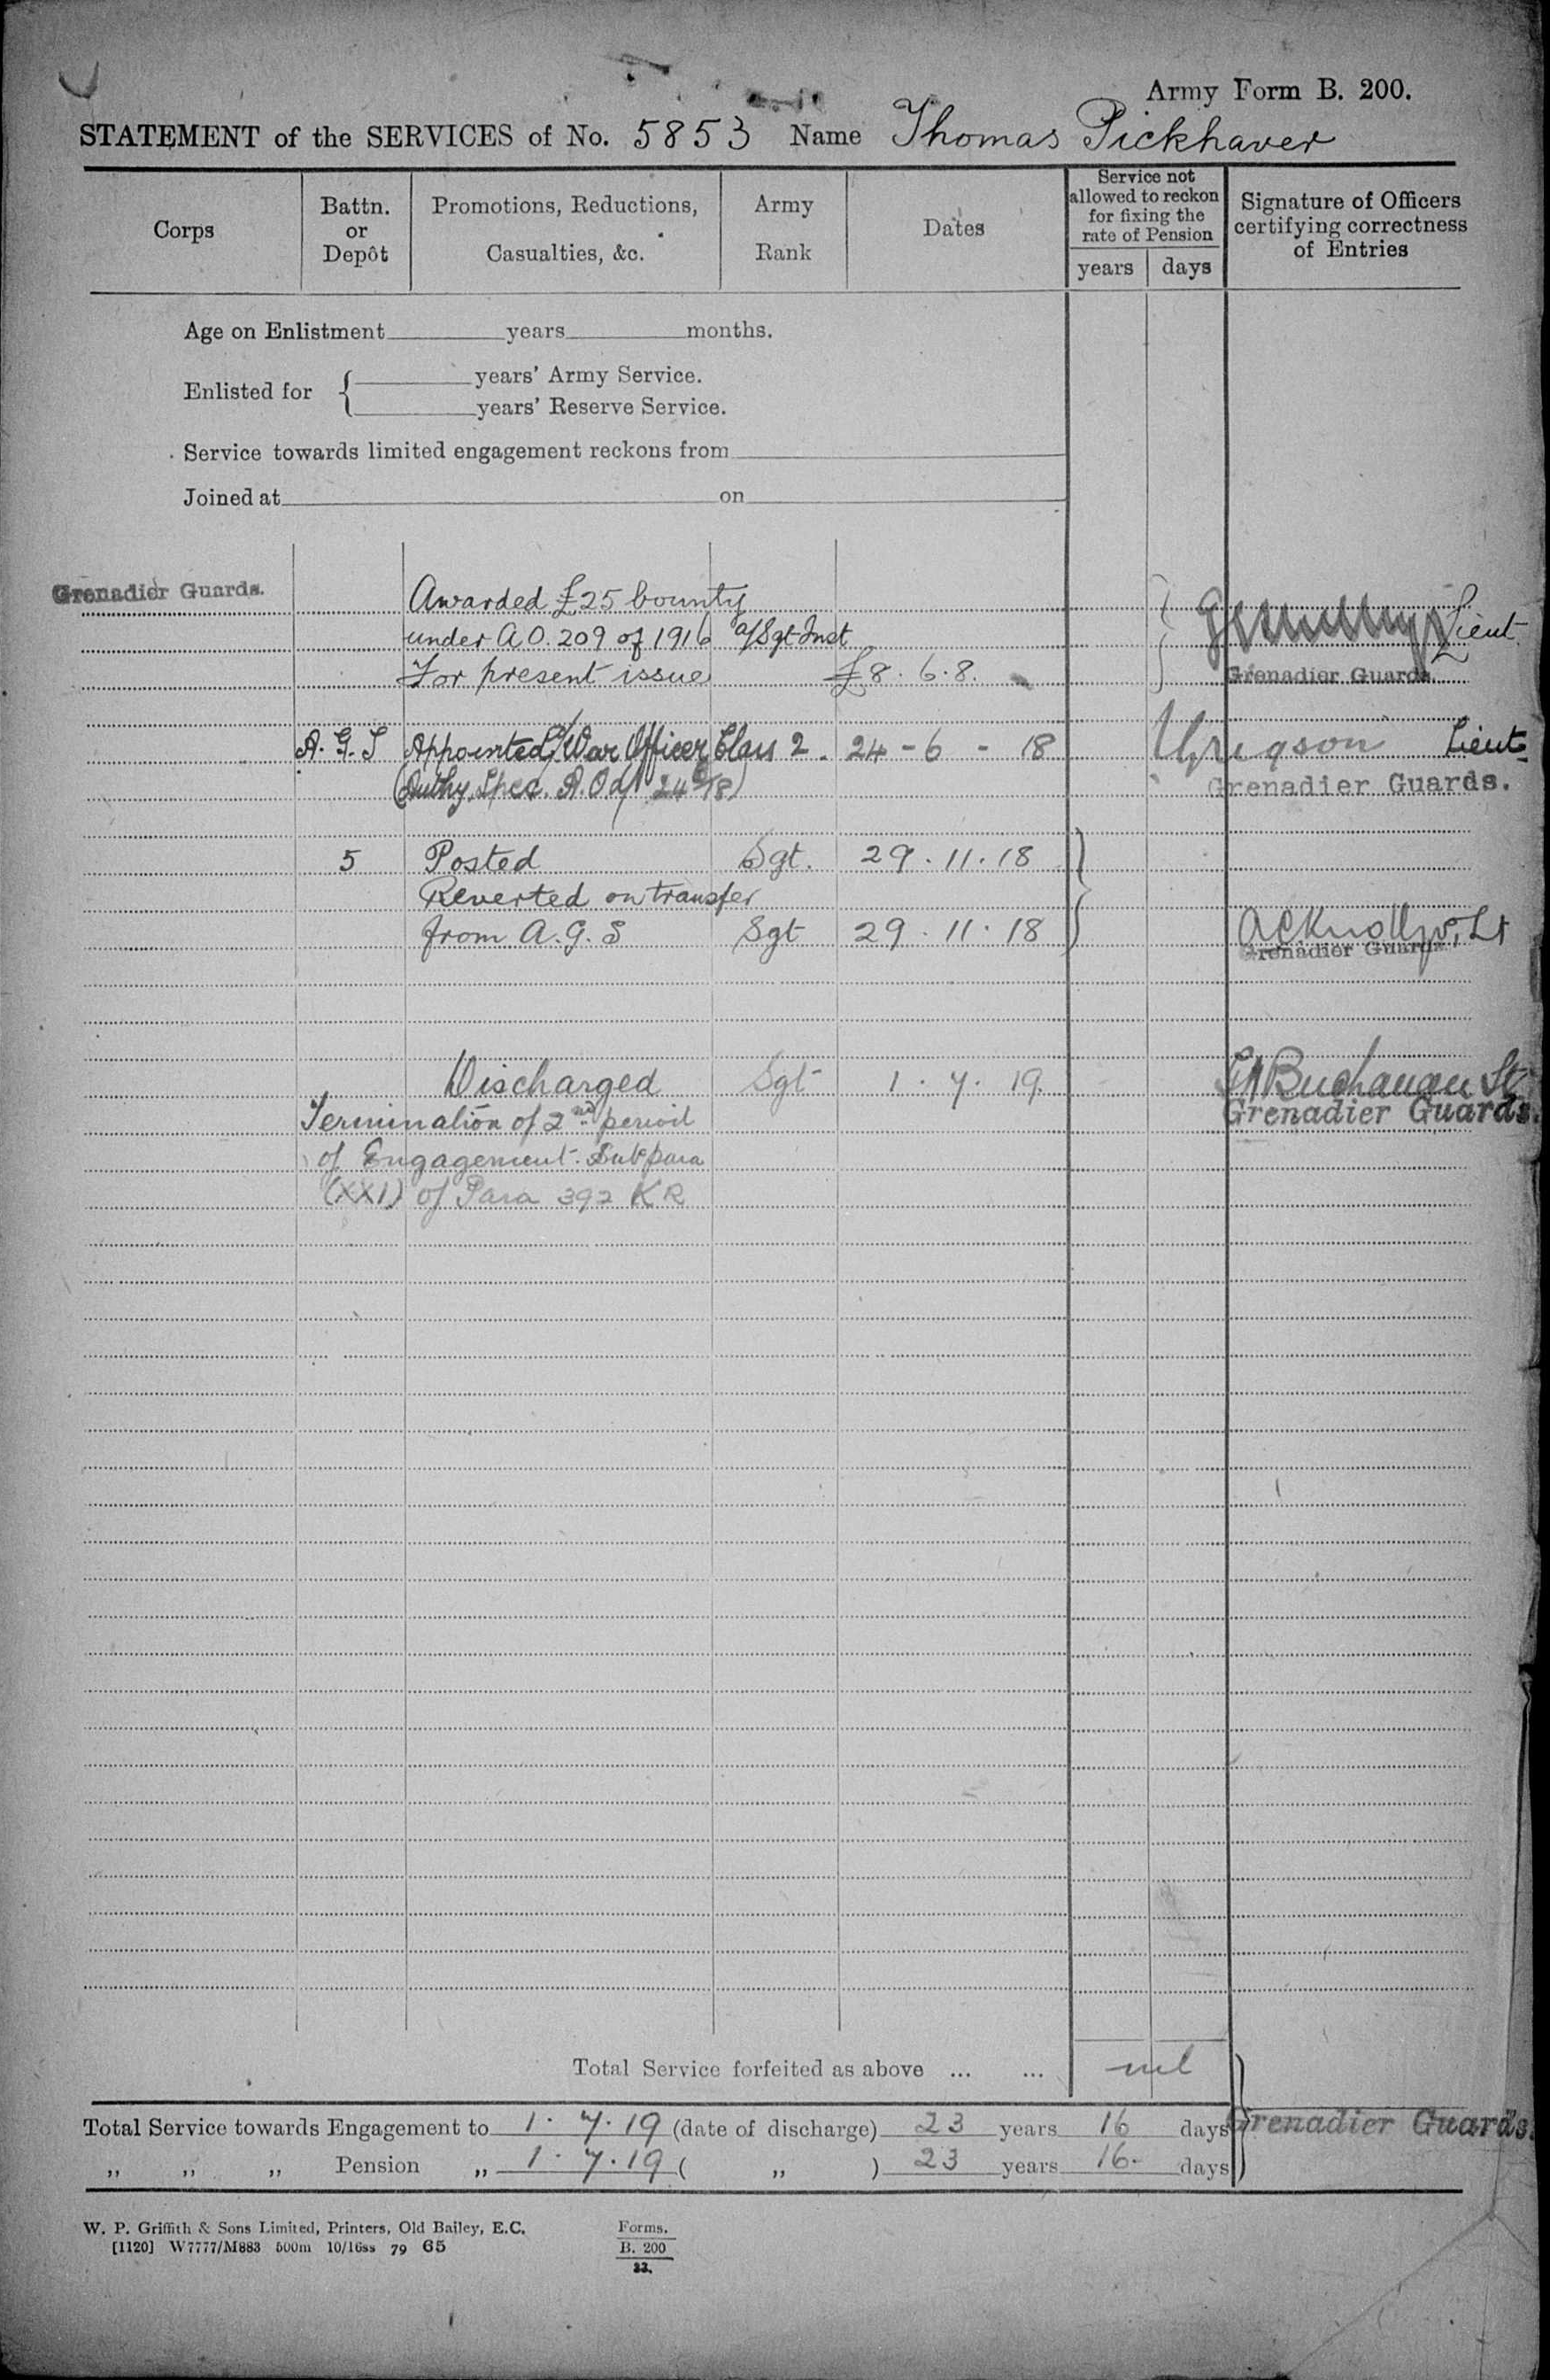 Army Form B. 200.
STATEMENT of the SERVICES of No. 5853 Name Thomas Pickhaver
Corps
Battn. or Depôt
Promotions, Reductions, Casualties, &c.
Army Rank
Dates
Service not allowed to reckon for fixing the rate of Pension
years days
Signature of Officers certifying correctness of Entries
Age on Enlistment years months.
Enlisted for { years' Army Service.
years' Reserve Service.
Service towards limited engagement reckons from
Joined at on
Grenadier Guards.
Awarded £25 bounty
under A O. 209 of 1916 a/Sgt Inst Lieut
For present issue £8. 6. 8. Grenadier Guards.
A. G. S Appointed War Officer Class 2. 24 - 6 - 18 Lieut
(Authy. Spec. A. O d/ 24/6/18) Grenadier Guards.
5 Posted Sgt. 29. 11. 18
Reverted on transfer
from A. G. S Sgt 29. 11. 18 Lt
Grenadier Guards
Discharged Sgt 1. 7. 19. Buchanan Lt
Grenadier Guards.
Termination of 2nd period
of Engagement. Sub para
(XXI) of Para 392 K R
Total Service forfeited as above ... ... nil
Total Service towards Engagement to 1. 7. 19 (date of discharge) 23 years 16 days Grenadier Guards.
„ „ „ Pension „ 1. 7. 19 ( „ ) 23 years 16. days
W. P. Griffith & Sons Limited, Printers, Old Bailey, E.C.
[1120] W7777/M883 500m 10/16ss 79 65
Forms.
B. 200
33.